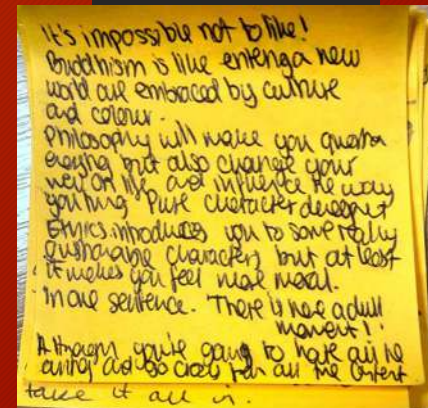 It's impossible not to like!
Buddhism is like entering a new
world and embraced by culture
and colour.
Philosophy will make you question
everything but also change your
view on life and influence the way
you think. Pure character development
Ethics introduces you to some really
questionable characters but at least
it makes you feel more moral.
In one sentence. There is never a dull
moment!
Although you're going to hate all the
and go crazy from all the content
take it all in.